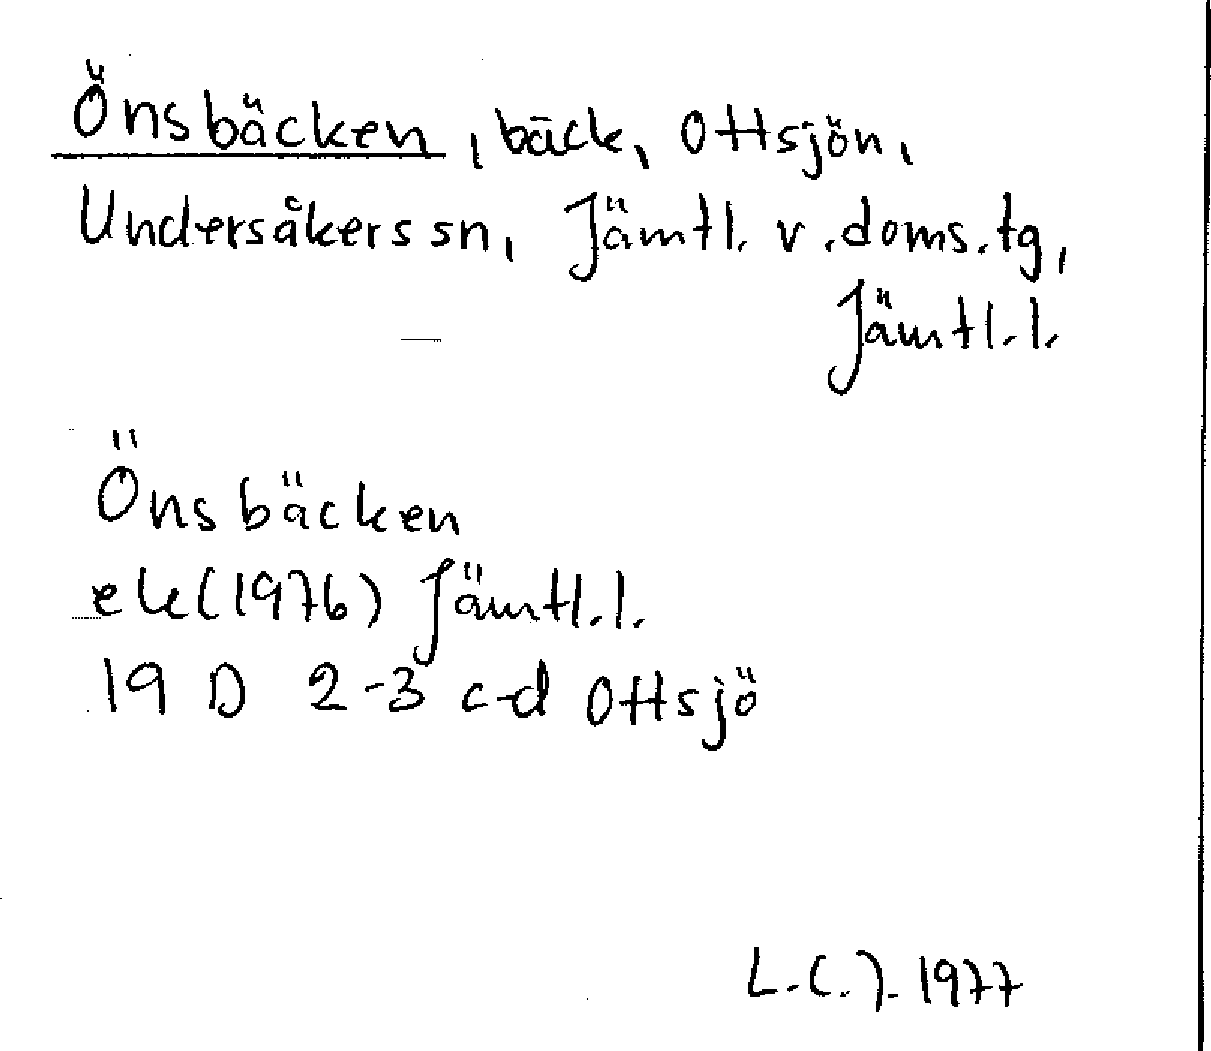 Önsbäcken, bäck, Ottsjön,
Undersåkers sn, Jämtl. v. doms. tg,
Jämtl. l.
Önsbäcken
ek (1976) Jämtl. l.
19 D 2-3 c-d Ottsjö
L.C.J. 1977